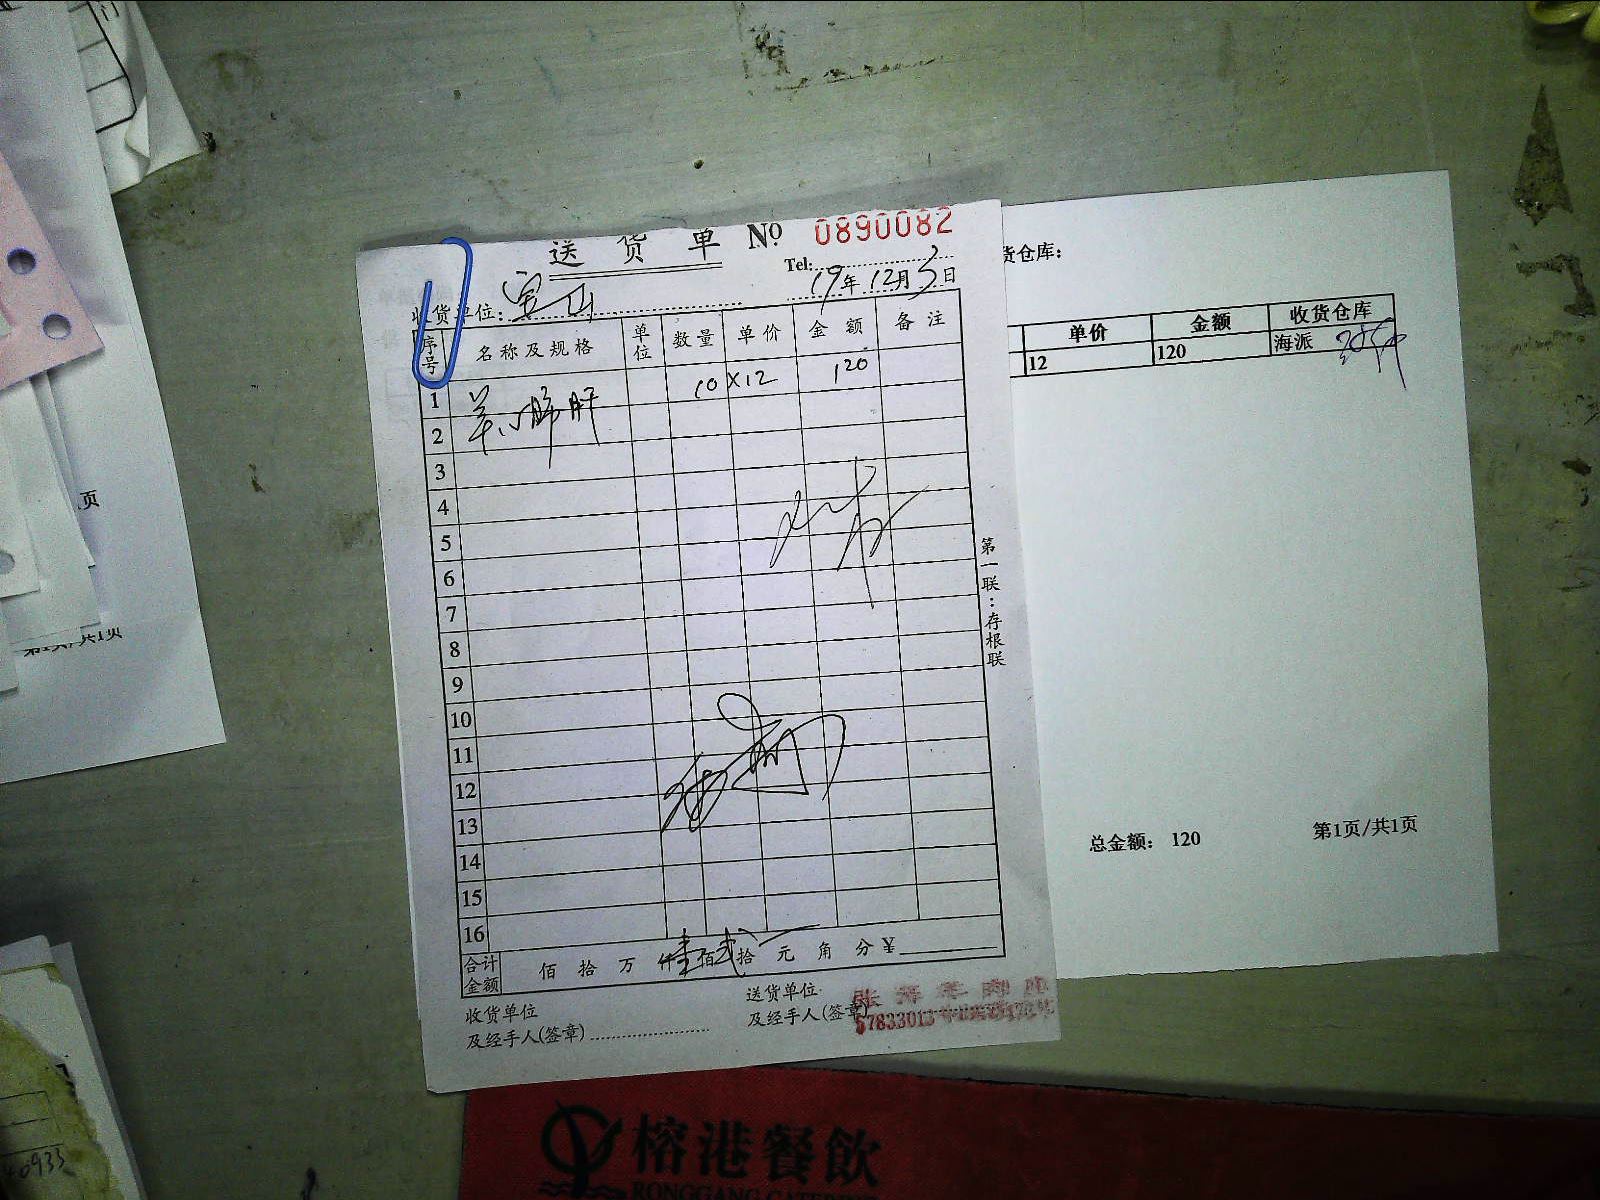 送货单 No 0890082
Tel:
19年12月3日
收货单位: 宝山
序号 名称及规格 单位 数量 单价 金额 备注
1 羊心肺肝 10 X12 120
2
3
4
5
6
7
8
9
10
11
12
13
14
15
16
合计金额 佰拾万仟壹佰贰拾元角分¥
收货单位
及经手人(签章)
送货单位
及经手人(签章)
第一联:存根联
货仓库:
单价 金额 收货仓库
12 120 海派
总金额: 120 第1页/共1页
页
共1页
40933
榕港餐飲